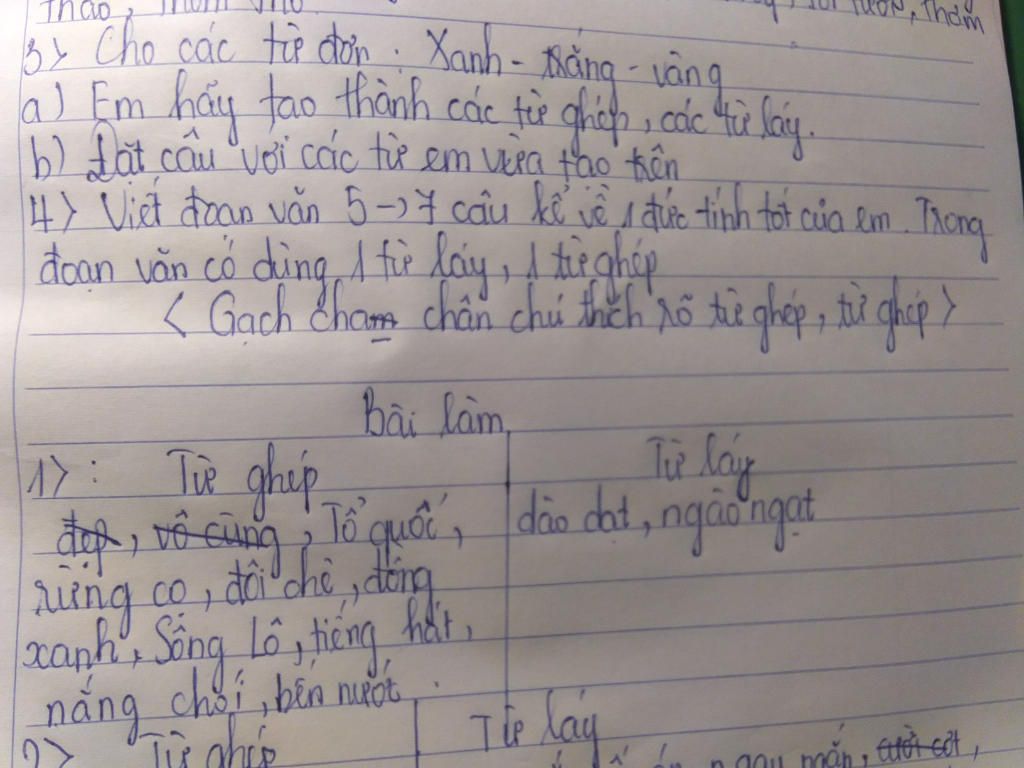 thảo, thơm tho
thơm
3> Cho các từ đơn: Xanh - trắng - vàng
a) Em hãy tạo thành các từ ghép, các từ láy.
b) Đặt câu với các từ em vừa tạo trên
4> Viết đoạn văn 5 -> 7 câu kể về 1 đức tính tốt của em. Trong
đoạn văn có dùng 1 từ láy, 1 từ ghép
< Gạch cham chân chú thích rõ từ ghép, từ ghép >
Bài làm
1>: Từ ghép
Từ láy
đẹp, vô cùng, Tổ quốc,
dào dạt, ngào ngạt
rừng cọ, đồi chè, đồng
xanh, Sông Lô, tiếng hát,
nắng chói, bến nước.
2> Từ ghép
Từ láy
ngay ngắn, cười cợt,